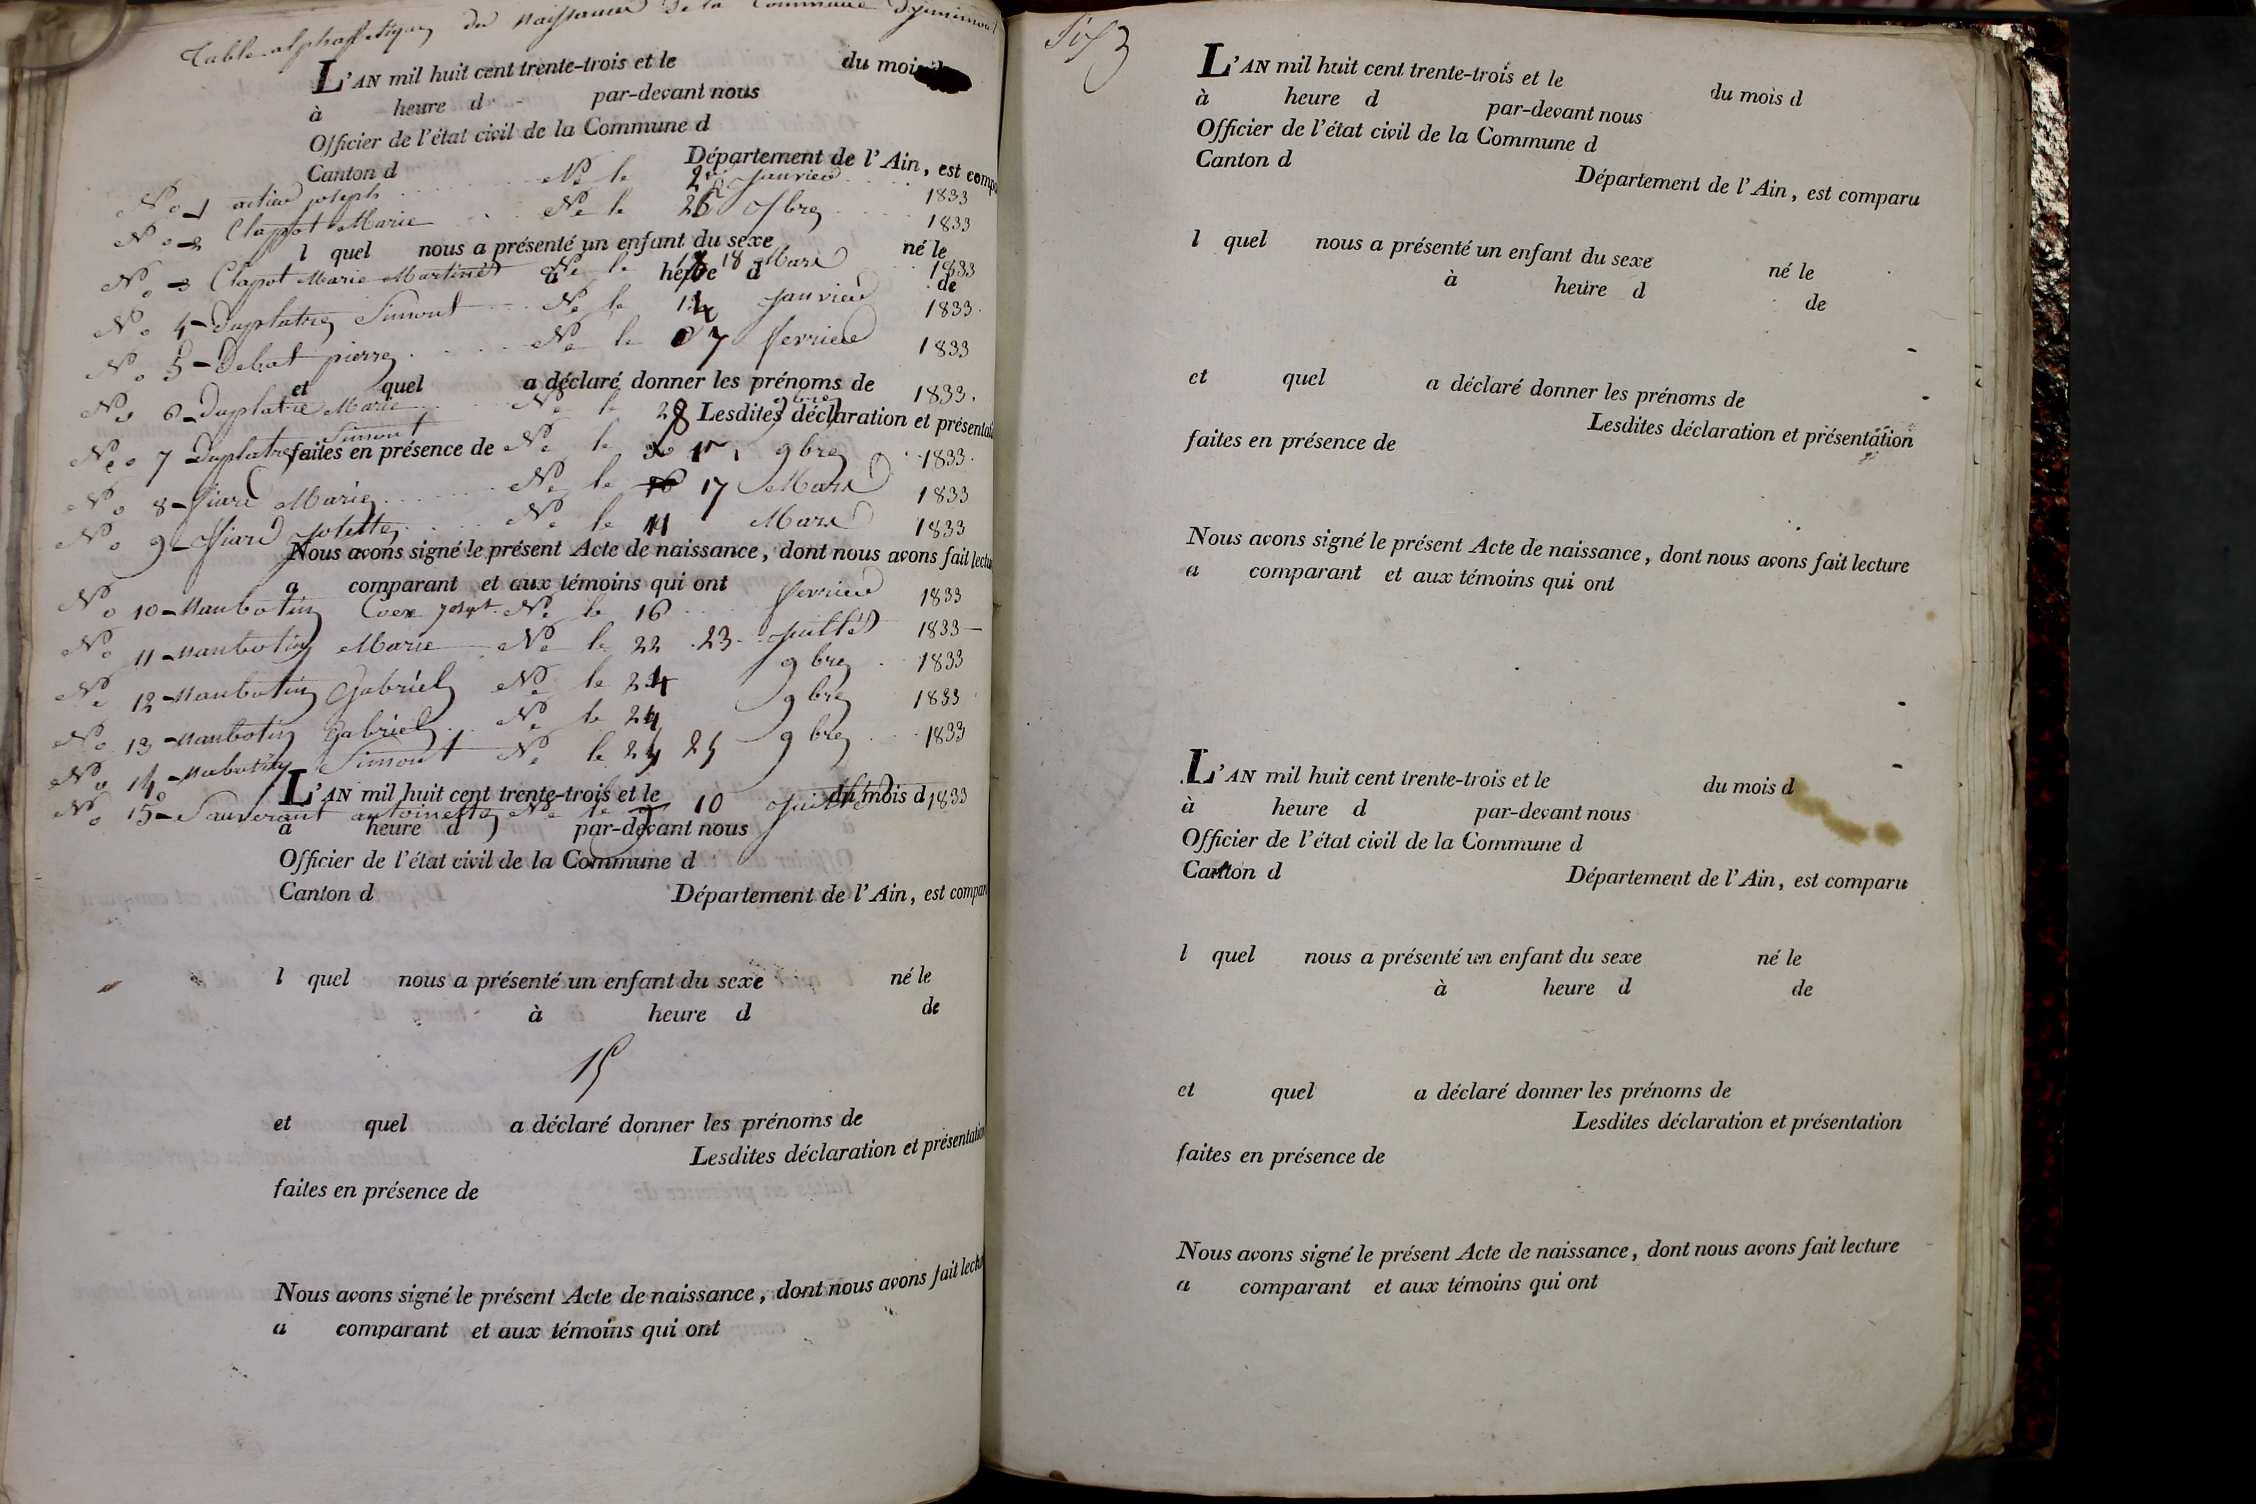 Table alphabetique des Naissances de la Commune
L'AN mil huit cent trente-trois et le du mois
à heure d par-devant nous
Officier de l'état civil de la Commune d
Canton d Département de l'Ain, est compa
No 1 joseph Ne le janvier 1833
No 2 Clapot Marie Ne le 1833
l quel nous a présenté un enfant du sexe né le
No 3 Clapot Marie Ne le 18 Mars 1833
à heure d de
No 4 Duplatre Simont Ne le 14 janvier 1833
No 5 Debat pierre Ne le 7 fevrier 1833
et quel a déclaré donner les prénoms de
No 6 Duplatre Marie Ne le 28 9bre 1833
Lesdites déclaration et présentati
No 7 Duplatre Simont Ne le 9bre 1833
faites en présence de
No 8 Marie Ne le 17 Mars 1833
No 9 Ne le 11 Mars 1833
Nous avons signé le présent Acte de naissance, dont nous avons fait lectu
a comparant et aux témoins qui ont
No 10 Manbotin Ne le 16 fevrier 1833
No 11 Manbotin Marie Ne le 22 23 juillet 1833
No 12 Manbotin Gabriel Ne le 24 9bre 1833
No 13 Manbotin Gabriel Ne le 24 9bre 1833
No 14 Simont Ne le 24 25 9bre 1833
L'AN mil huit cent trente-trois et le du mois d
No 15 antoinette Ne le 10 juillet 1833
à heure d par-devant nous
Officier de l'état civil de la Commune d
Canton d Département de l'Ain, est compar
l quel nous a présenté un enfant du sexe né le
à heure d de
15
et quel a déclaré donner les prénoms de
Lesdites déclaration et présentation
faites en présence de
Nous avons signé le présent Acte de naissance, dont nous avons fait lectu
a comparant et aux témoins qui ont
L'AN mil huit cent trente-trois et le du mois d
à heure d par-devant nous
Officier de l'état civil de la Commune d
Canton d Département de l'Ain, est comparu
l quel nous a présenté un enfant du sexe né le
à heure d de
et quel a déclaré donner les prénoms de
Lesdites déclaration et présentation
faites en présence de
Nous avons signé le présent Acte de naissance, dont nous avons fait lecture
a comparant et aux témoins qui ont
L'AN mil huit cent trente-trois et le du mois d
à heure d par-devant nous
Officier de l'état civil de la Commune d
Canton d Département de l'Ain, est comparu
l quel nous a présenté un enfant du sexe né le
à heure d de
et quel a déclaré donner les prénoms de
Lesdites déclaration et présentation
faites en présence de
Nous avons signé le présent Acte de naissance, dont nous avons fait lecture
a comparant et aux témoins qui ont